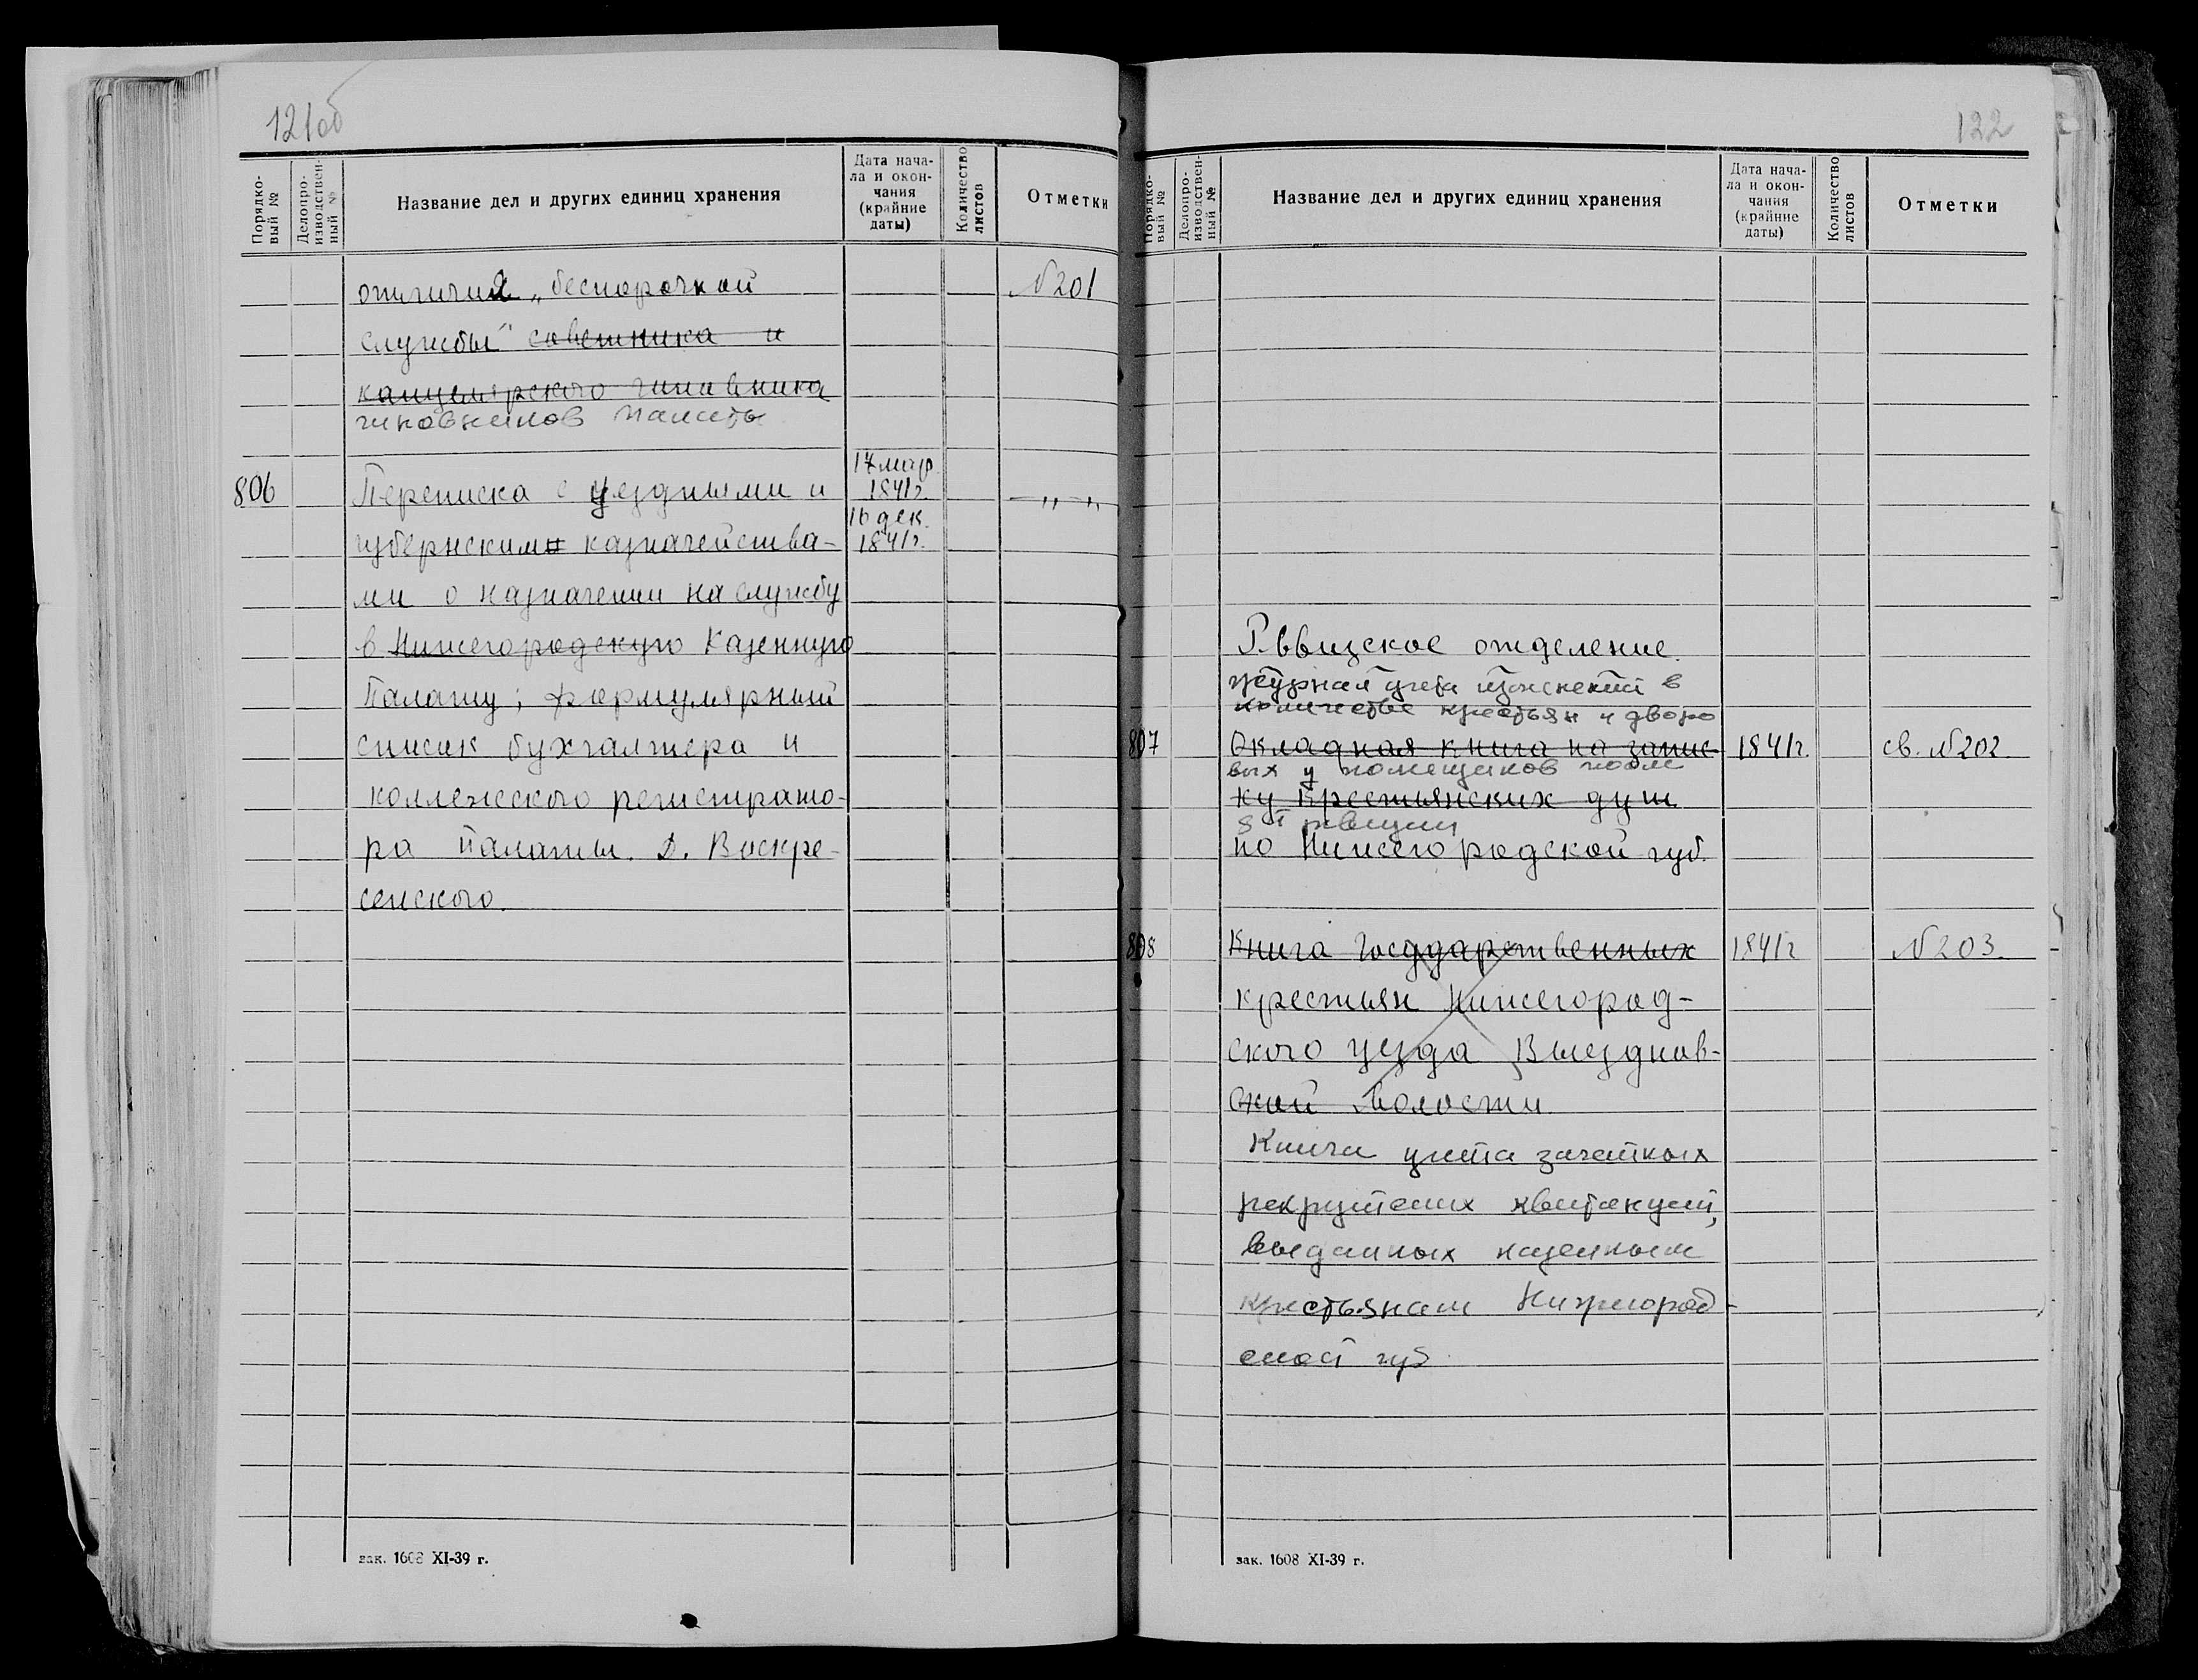 121об
Порядко-
вый №
Делопро-
изводствен-
ный №
Название дел и других единиц хранения
Дата нача-
ла и окон-
чания
(крайние
даты)
Количество
листов
Отметки
отличия „беспорочной N 201
службы" советника и
канцелярского чиновника
чиновников палаты
17 мар.
806 Переписка с уездными и 1841г. —„—„
16 дек.
губернскими казначейства- 1841г.
ми о назначении на службу
в Нижегородскую Казенную
Палату; формулярный
список бухгалтера и
коллежского регистрато-
ра палаты. Д. Воскре-
сенского.
зак. 1608 XI-39 г.
122
Порядко-
вый №
Делопро-
изводствен-
ный №
Название дел и других единиц хранения
Дата нача-
ла и окон-
чания
(крайние
даты)
Количество
листов
Отметки
отделение.
журнал учета в
количестве крестьян и дворо
807 Окладная книга на запис- 1841г. св. N 202.
вых у помещиков после
ку крестьянских душ
8й ревизии
по Нижегородской губ.
808 Книга Государственных 1841г N 203.
крестьян Нижегород-
ского уезда Выезднов-
ской Волости.
Книга учета зачетных
рекрутских квитанций,
выданных казенным
крестьянам Нижегород-
ской губ.
зак. 1608 XI-39 г.